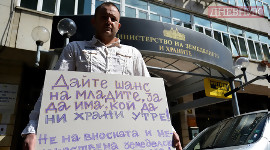 ДНЕВНИК
МИНИСТЕРСТВО НА ЗЕМЕДЕЛИЕТО
И ХРАНИТЕ
Дайте шанс
на младите, за
да има, кой да
ни храни утре!
Не на вноската и не